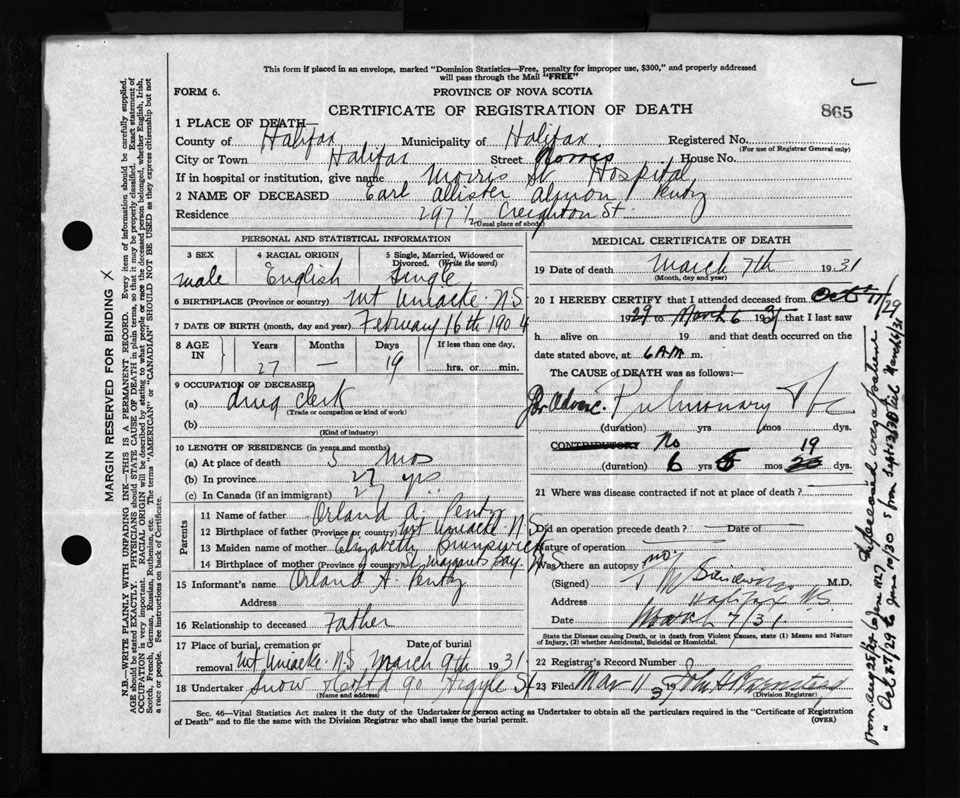 This form if placed in an envelope, marked "Dominion Statistics—Free, penalty for improper use, $300," and properly addressed
will pass through the Mail "FREE"
FORM 6.
PROVINCE OF NOVA SCOTIA
CERTIFICATE OF REGISTRATION OF DEATH
865
1 PLACE OF DEATH—
County of Halifax Municipality of Halifax Registered No.
(For use of Registrar General only)
City or Town Halifax Street Morris House No.
If in hospital or institution, give name Morris St. Hospital
2 NAME OF DECEASED Earl Allister Almon Pentz
Residence 297 1/2 Creighton St.
(Usual place of abode)
PERSONAL AND STATISTICAL INFORMATION
3 SEX
male
4 RACIAL ORIGIN
English
5 Single, Married, Widowed or
Divorced. (Write the word)
Single
6 BIRTHPLACE (Province or country) Mt Uniacke N.S.
7 DATE OF BIRTH (month, day and year) February 16th 1904
8 AGE
IN
Years
27
Months
—
Days
19
If less than one day,
hrs. or min.
9 OCCUPATION OF DECEASED
(a) drug clerk
(Trade or occupation or kind of work)
(b)
(Kind of industry)
10 LENGTH OF RESIDENCE (in years and months)
(a) At place of death 5 mos
(b) In province 27 yrs
(c) In Canada (if an immigrant) 27
Parents
11 Name of father Orland A. Pentz
12 Birthplace of father (Province or country) Mt Uniacke N S
13 Maiden name of mother Elizabeth
14 Birthplace of mother (Province or country) St Margarets Bay
15 Informant's name Orland A. Pentz
Address
16 Relationship to deceased Father
17 Place of burial, cremation or
removal Mt Uniacke N.S
Date of burial
March 9th 1931
18 Undertaker Snow & Co Ltd 90 Argyle St
(Name and address)
MEDICAL CERTIFICATE OF DEATH
19 Date of death March 7th 1931
(Month, day and year)
20 I HEREBY CERTIFY that I attended deceased from Oct 17/29
1929 to March 6 1931 that I last saw
h alive on 19 and that death occurred on the
date stated above, at 6 A.M. m.
The CAUSE of DEATH was as follows:
Pulmonary Tbc
(duration) yrs mos dys.
CONTRIBUTORY No
(duration) 6 yrs 5 mos 19 20 dys.
21 Where was disease contracted if not at place of death?
Did an operation precede death? — Date of —
Nature of operation
Was there an autopsy? no
(Signed) M.D.
Address Halifax N.S.
Date March 7/31
State the Disease causing Death, or in death from Violent Causes, state (1) Means and Nature
of Injury, (2) whether Accidental, Suicidal or Homicidal.
22 Registrar's Record Number
23 Filed Mar 11 1931
(Division Registrar)
Sec. 46—Vital Statistics Act makes it the duty of the Undertaker or person acting as Undertaker to obtain all the particulars required in the "Certificate of Registration
of Death" and to file the same with the Division Registrar who shall issue the burial permit.
(OVER)
MARGIN RESERVED FOR BINDING X
N.B.—WRITE PLAINLY WITH UNFADING INK—THIS IS A PERMANENT RECORD. Every item of information should be carefully supplied.
AGE should be stated EXACTLY. PHYSICIANS should STATE CAUSE OF DEATH in plain terms, so that it may be properly classified. Exact statement of
OCCUPATION is very important. RACIAL ORIGIN will be described by stating to what people or race the deceased person belonged, whether English, Irish,
Scotch, French, German, Russian, Ruthenian, etc. The terms "AMERICAN" or "CANADIAN" SHOULD NOT BE USED as they express citizenship but not
a race or people. See instructions on back of Certificate.
The deceased was a patient
from Aug 25/24 to June 10/27
" Oct 17/29 to June 10/30 & from Sept 23/30 till March 6/31